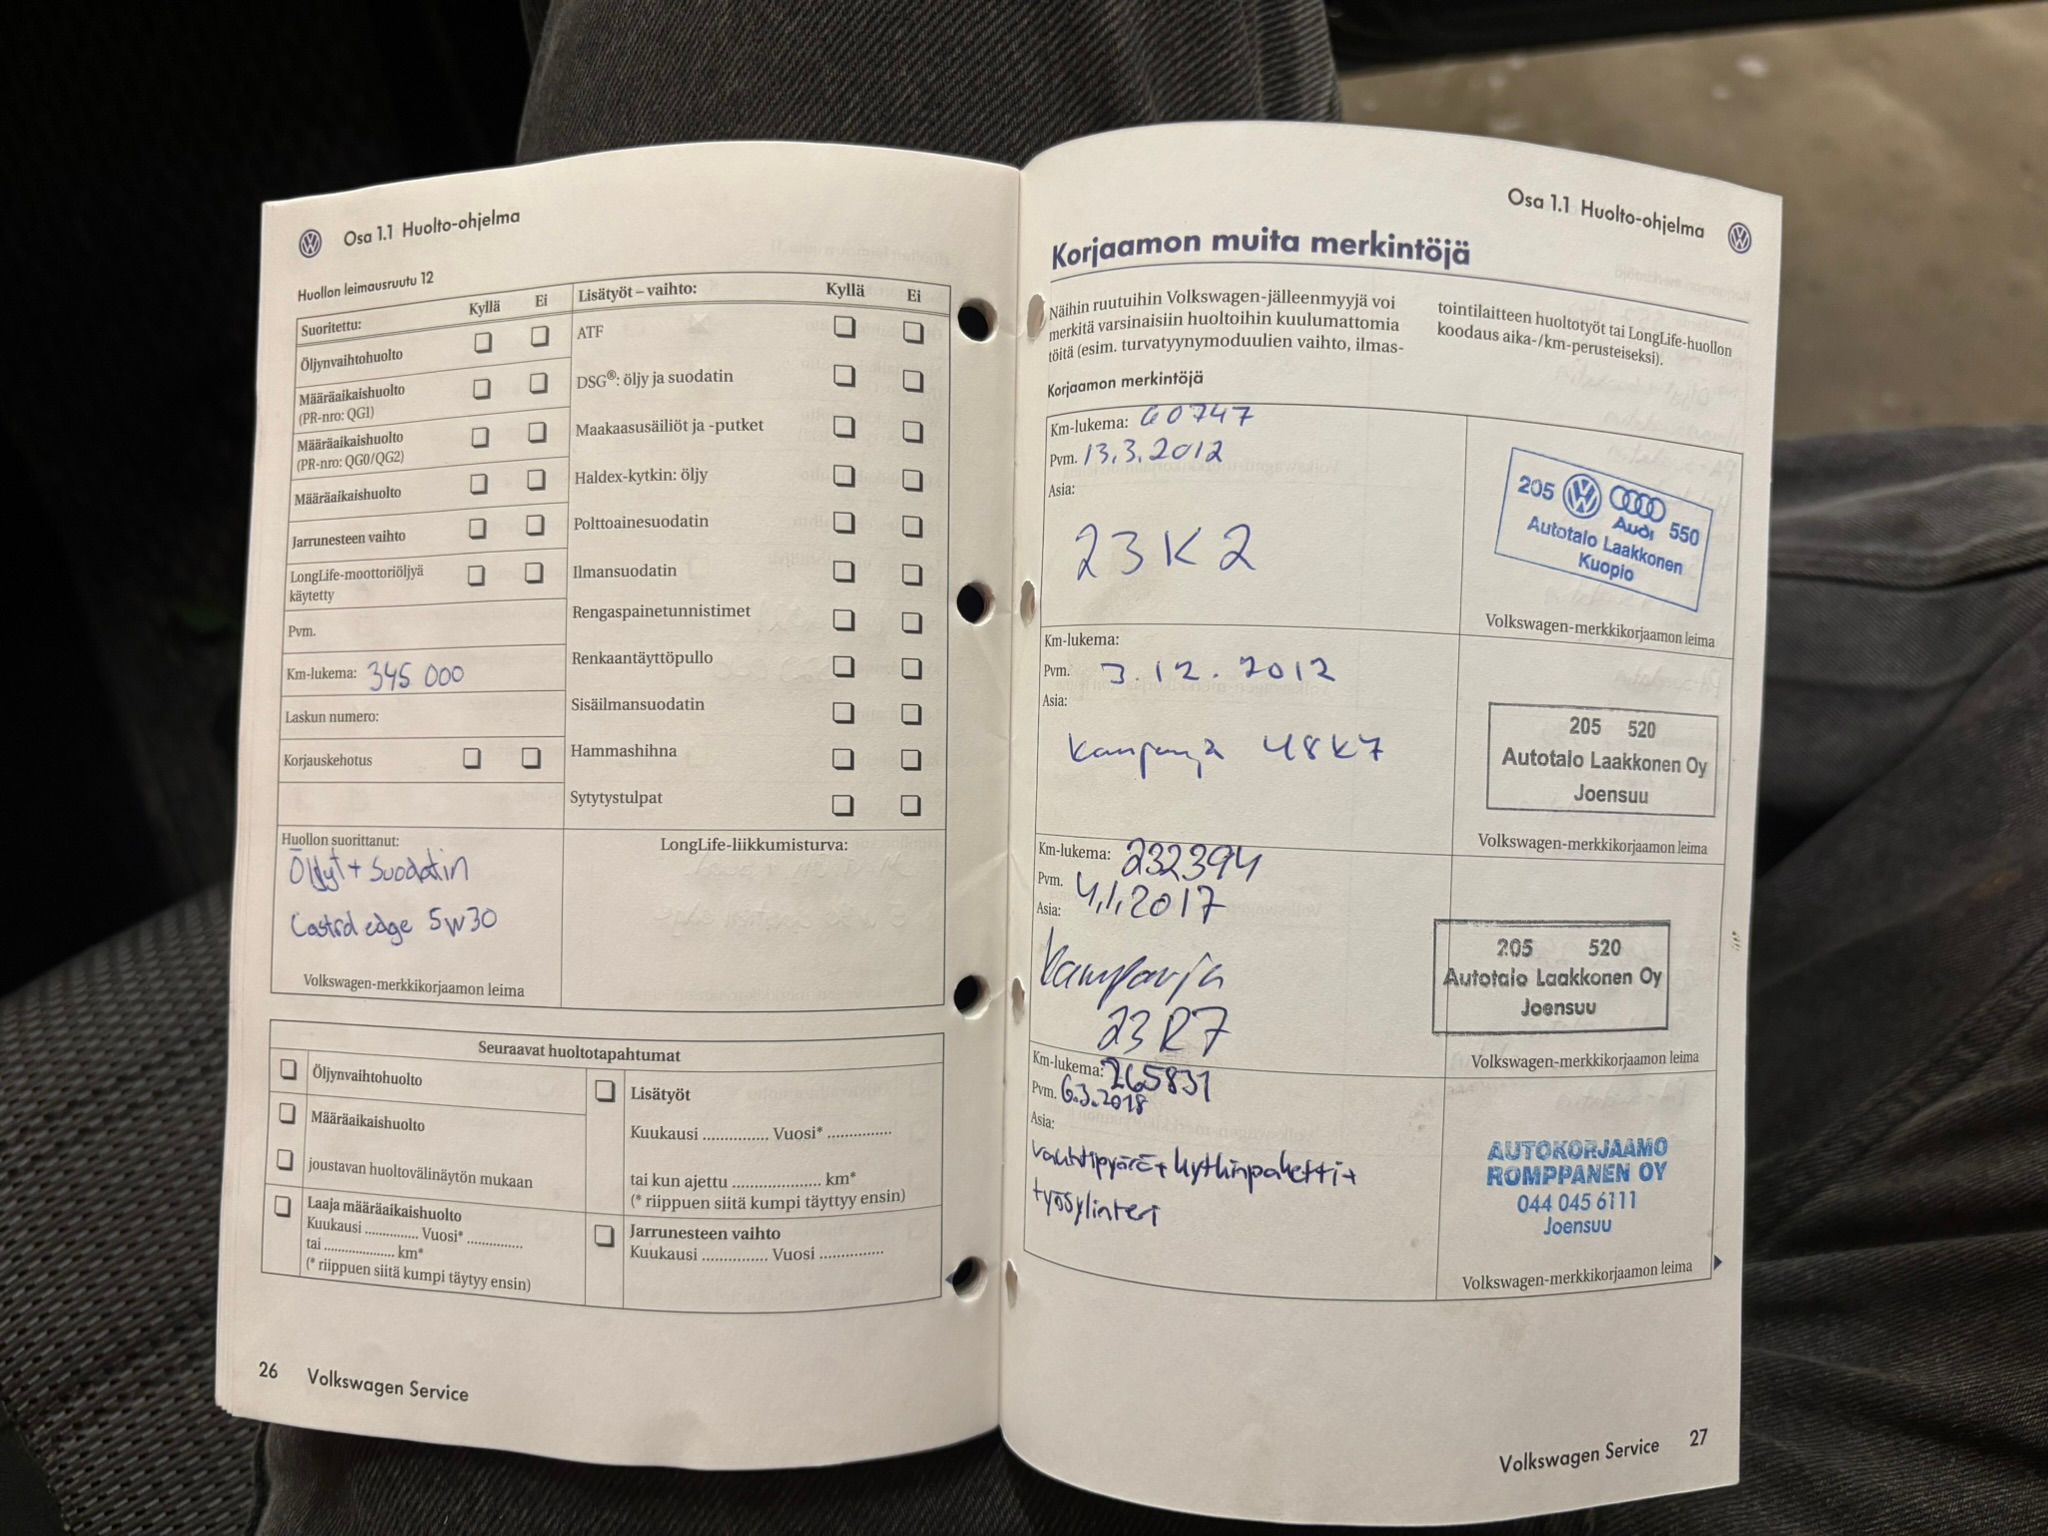 Osa 1.1 Huolto-ohjelma
Huollon leimausruutu 12
Suoritettu: Kyllä Ei
Öljynvaihtohuolto
Määräaikaishuolto
(PR-nro: QG1)
Määräaikaishuolto
(PR-nro: QG0/QG2)
Määräaikaishuolto
Jarrunesteen vaihto
LongLife-moottoriöljyä
käytetty
Pvm.
Km-lukema: 345 000
Laskun numero:
Korjauskehotus
Lisätyöt – vaihto: Kyllä Ei
ATF
DSG®: öljy ja suodatin
Maakaasusäiliöt ja -putket
Haldex-kytkin: öljy
Polttoainesuodatin
Ilmansuodatin
Rengaspainetunnistimet
Renkaantäyttöpullo
Sisäilmansuodatin
Hammashihna
Sytytystulpat
Huollon suorittanut:
Öljyt + Suodatin
Castrol edge 5w30
Volkswagen-merkkikorjaamon leima
LongLife-liikkumisturva:
Seuraavat huoltotapahtumat
Öljynvaihtohuolto
Määräaikaishuolto
joustavan huoltovälinäytön mukaan
Laaja määräaikaishuolto
Kuukausi .............. Vuosi* ..............
tai .................. km*
(* riippuen siitä kumpi täytyy ensin)
Lisätyöt
Kuukausi .............. Vuosi* ..............
tai kun ajettu .................. km*
(* riippuen siitä kumpi täyttyy ensin)
Jarrunesteen vaihto
Kuukausi .............. Vuosi ..............
26 Volkswagen Service
Osa 1.1 Huolto-ohjelma
Korjaamon muita merkintöjä
Näihin ruutuihin Volkswagen-jälleenmyyjä voi
merkitä varsinaisiin huoltoihin kuulumattomia
töitä (esim. turvatyynymoduulien vaihto, ilmas-
tointilaitteen huoltotyöt tai LongLife-huollon
koodaus aika-/km-perusteiseksi).
Korjaamon merkintöjä
Km-lukema: 60747
Pvm. 13.3.2012
Asia:
23K2
205 Audi 550
Autotalo Laakkonen
Kuopio
Volkswagen-merkkikorjaamon leima
Km-lukema:
Pvm. 3.12.2012
Asia:
Kampanja 48K7
205 520
Autotalo Laakkonen Oy
Joensuu
Volkswagen-merkkikorjaamon leima
Km-lukema: 232394
Pvm. 4.1.2017
Asia:
Kampanja
23R7
205 520
Autotalo Laakkonen Oy
Joensuu
Volkswagen-merkkikorjaamon leima
Km-lukema: 265831
Pvm. 6.3.2018
Asia:
vauhtipyörä + kytkinpaketti +
työsylinteri
AUTOKORJAAMO
ROMPPANEN OY
044 045 6111
Joensuu
Volkswagen-merkkikorjaamon leima
Volkswagen Service 27